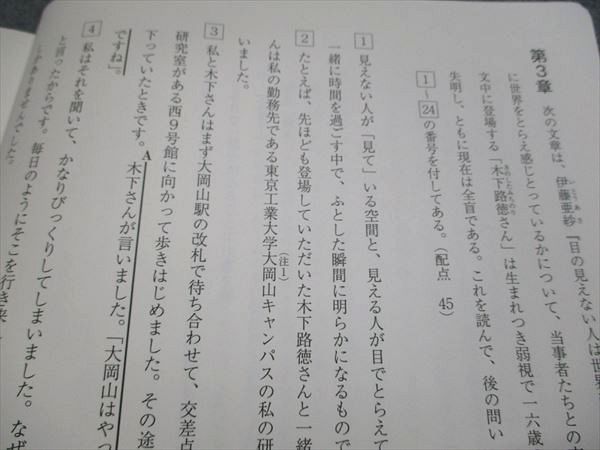 第３章　次の文章は、伊藤亜紗『目の見えない人は世界
に世界をとらえ感じとっているかについて、当事者たちとの
文中に登場する「木下路徳さん」は生まれつき弱視で一六歳
失明し、ともに現在は全盲である。これを読んで、後の問い
1～24の番号を付してある。（配点　45）
1　見えない人が「見て」いる空間と、見える人が目でとらえて
一緒に時間を過ごす中で、ふとした瞬間に明らかになるもので
2　たとえば、先ほども登場していただいた木下路徳さんと一緒
んは私の勤務先である東京工業大学大岡山キャンパスの私の研
いました。
3　私と木下さんはまず大岡山駅の改札で待ち合わせて、交差点
研究室がある西9号館に向かって歩きはじめました。その途
下っていたときです。A木下さんが言いました。「大岡山はやっ
ですね」。
4　私はそれを聞いて、かなりびっくりしてしまいました。なぜ
と言ったからです。毎日のようにそこを行き来
ありませんでした。